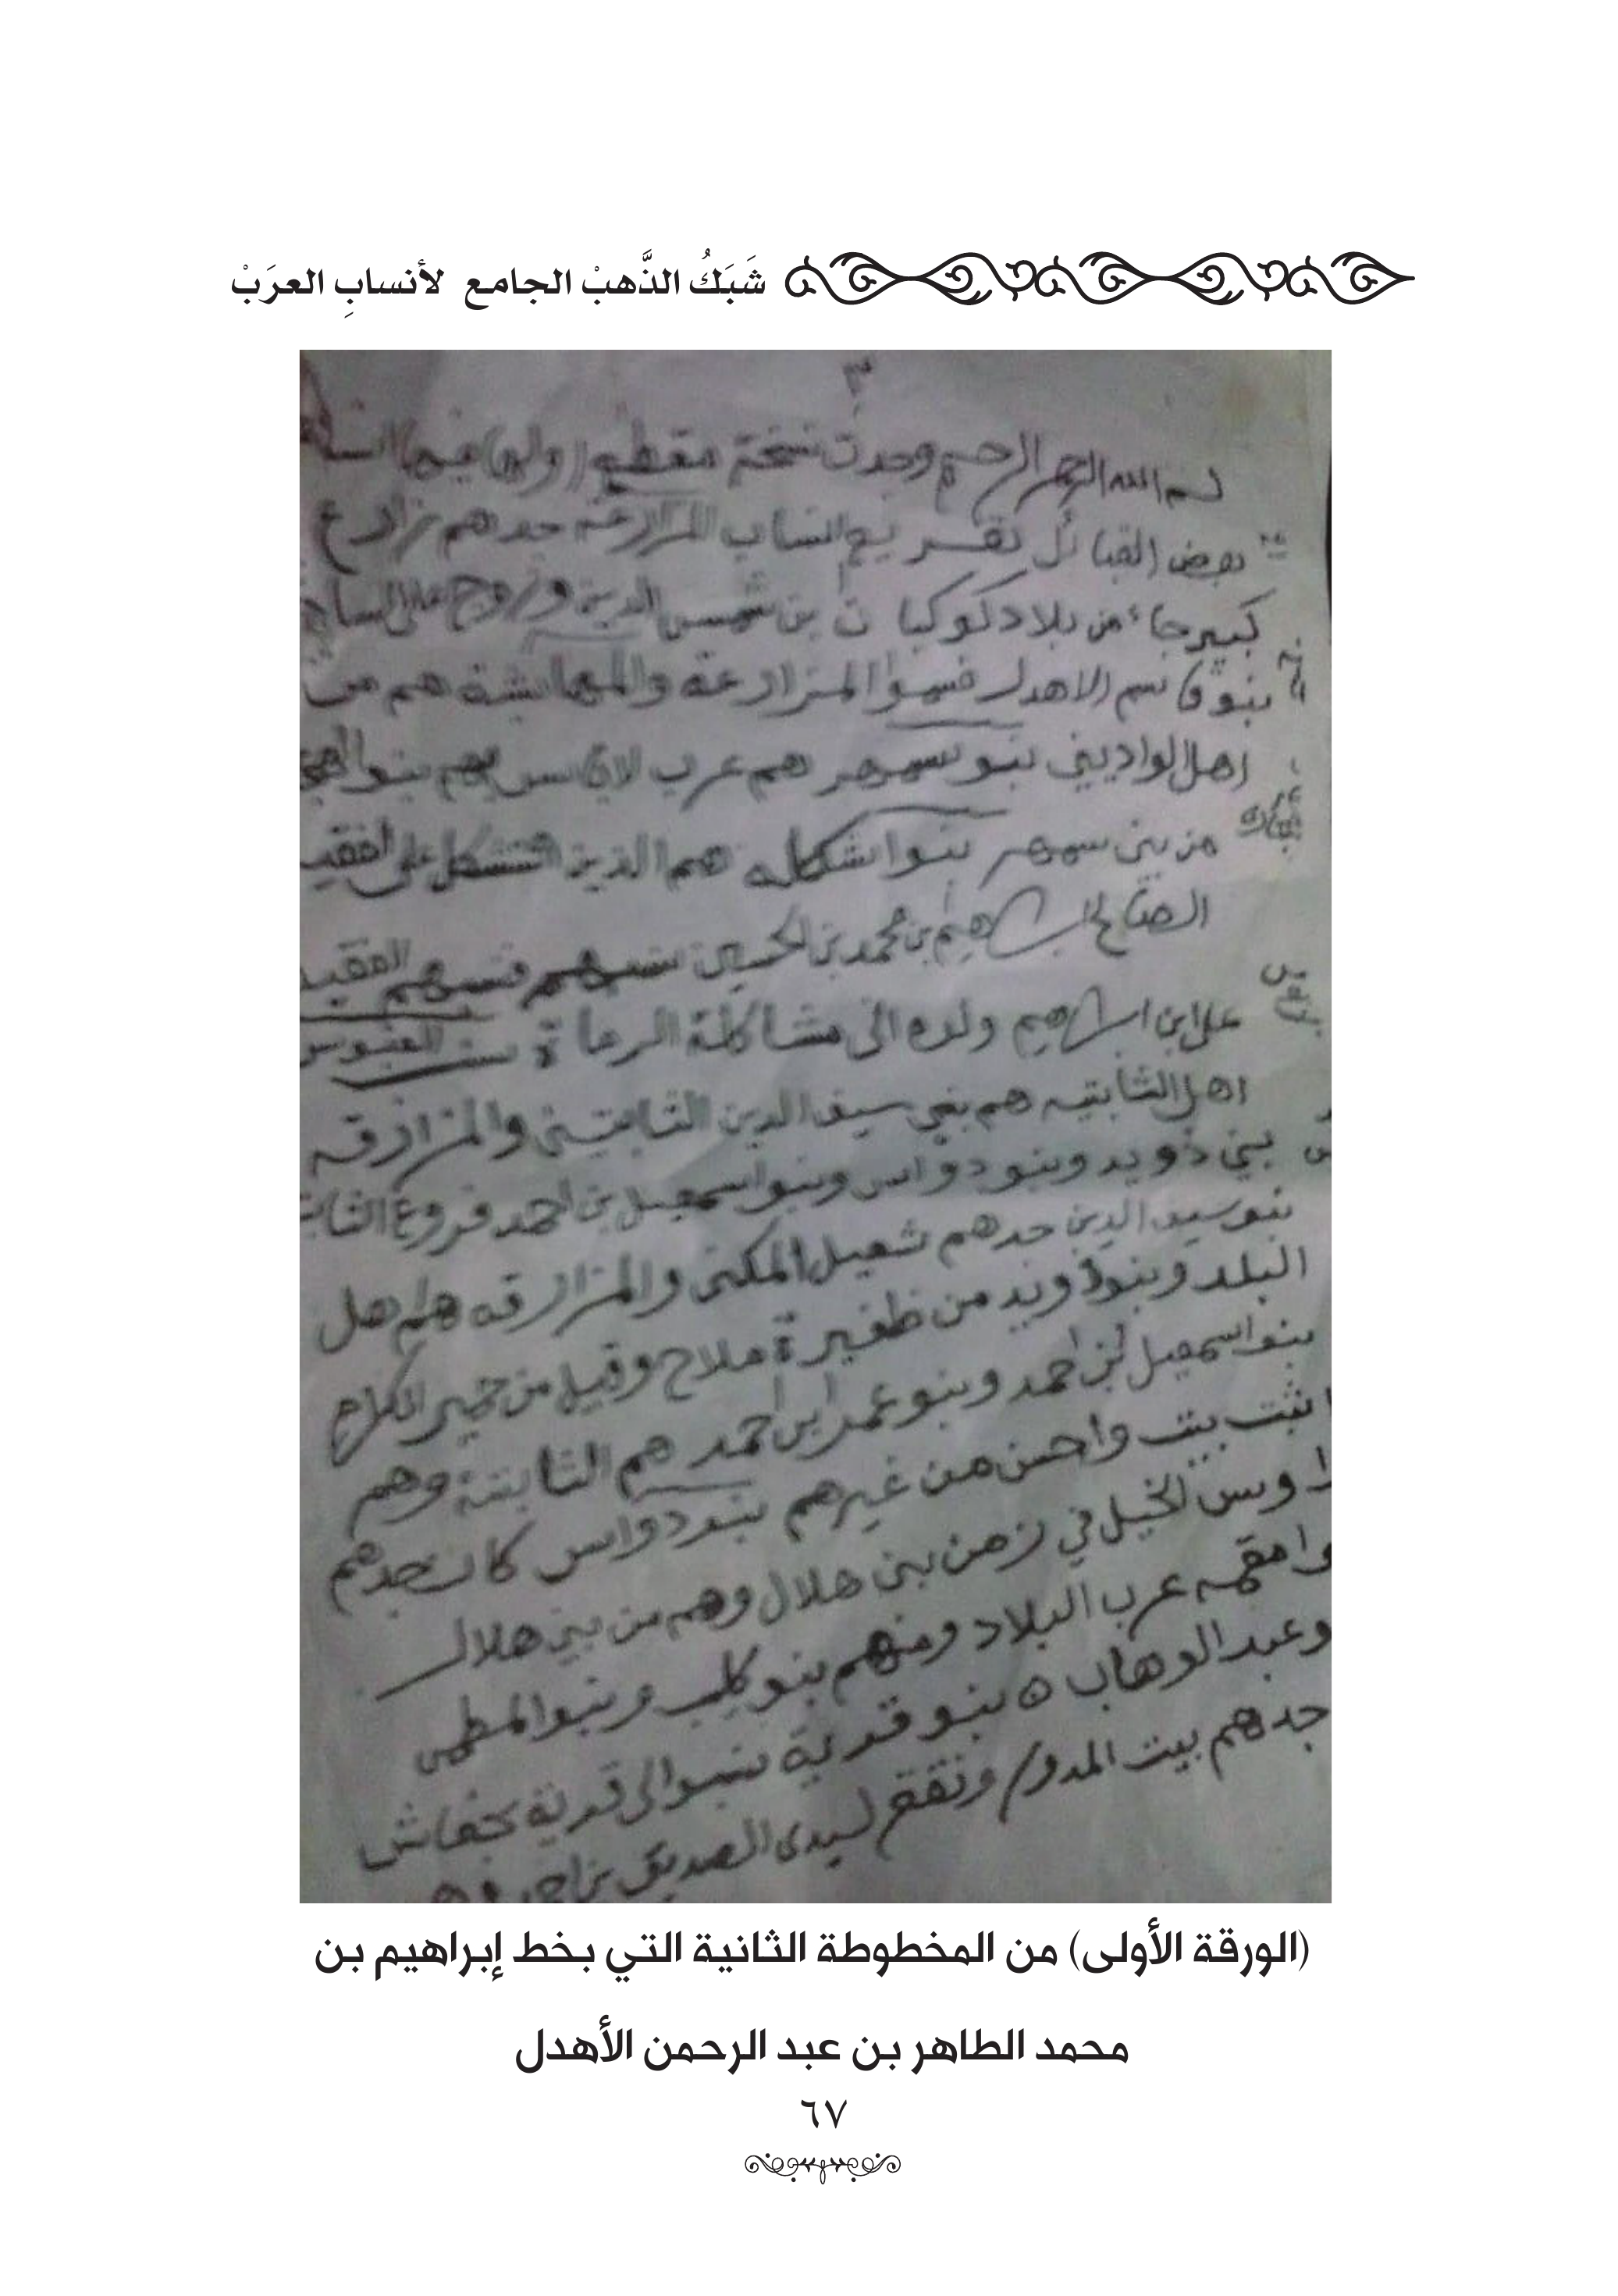 شَبَكُ الذَّهبْ الجامع لأنسابِ العرَبْ
٣
بسم الله الرحمن الرحيم وجدت نسخة مقطع اولها فيها انساب
بعض القبائل تفريع انساب المزارعة جدهم مزارع
كبير جاء من بلاد كوكبان بن شمس الدين وزوج على
بنو قاسم الاهدل فسموا المزارعة والمهايشة هم من
اهل الواديين بنو سهر هم عرب بنوا
من بني سهر بنوا شكله هم الذين على الفقيه
الصالح ابراهيم بن محمد بن الحسين فنسبهم الفقيه
علي ابن ابراهيم ولده الى مشاكلة الرعاة
اهل الثابتيه هم بني سيف الدين الثابتيني والمزارقه
بني ذويد وبنو دواس وبنو اسمعيل بن احمد فروع
بنو سيف الدين جدهم شعيل المكنى والمزارقه هم اهل
البلد وبنو ذويد من ظفيرة ملاح وقيل من حمير الكلاح
بنو اسمعيل بن احمد وبنو عمر ابن احمد هم الثابتية وهم
اثبت بيت واحسن من غيرهم بنو دواس كان جدهم
الخيل في زمن بني هلال وهم من بني هلال
عرب البلاد ومنهم بنو كليب وبنو
وعبد الوهاب ٥ بنو قدية نسبوا الى قدية بحفاش
جدهم بيت المدور لسيدي الصديق بن احمد
(الورقة الأولى) من المخطوطة الثانية التي بخط إبراهيم بن
محمد الطاهر بن عبد الرحمن الأهدل
٦٧